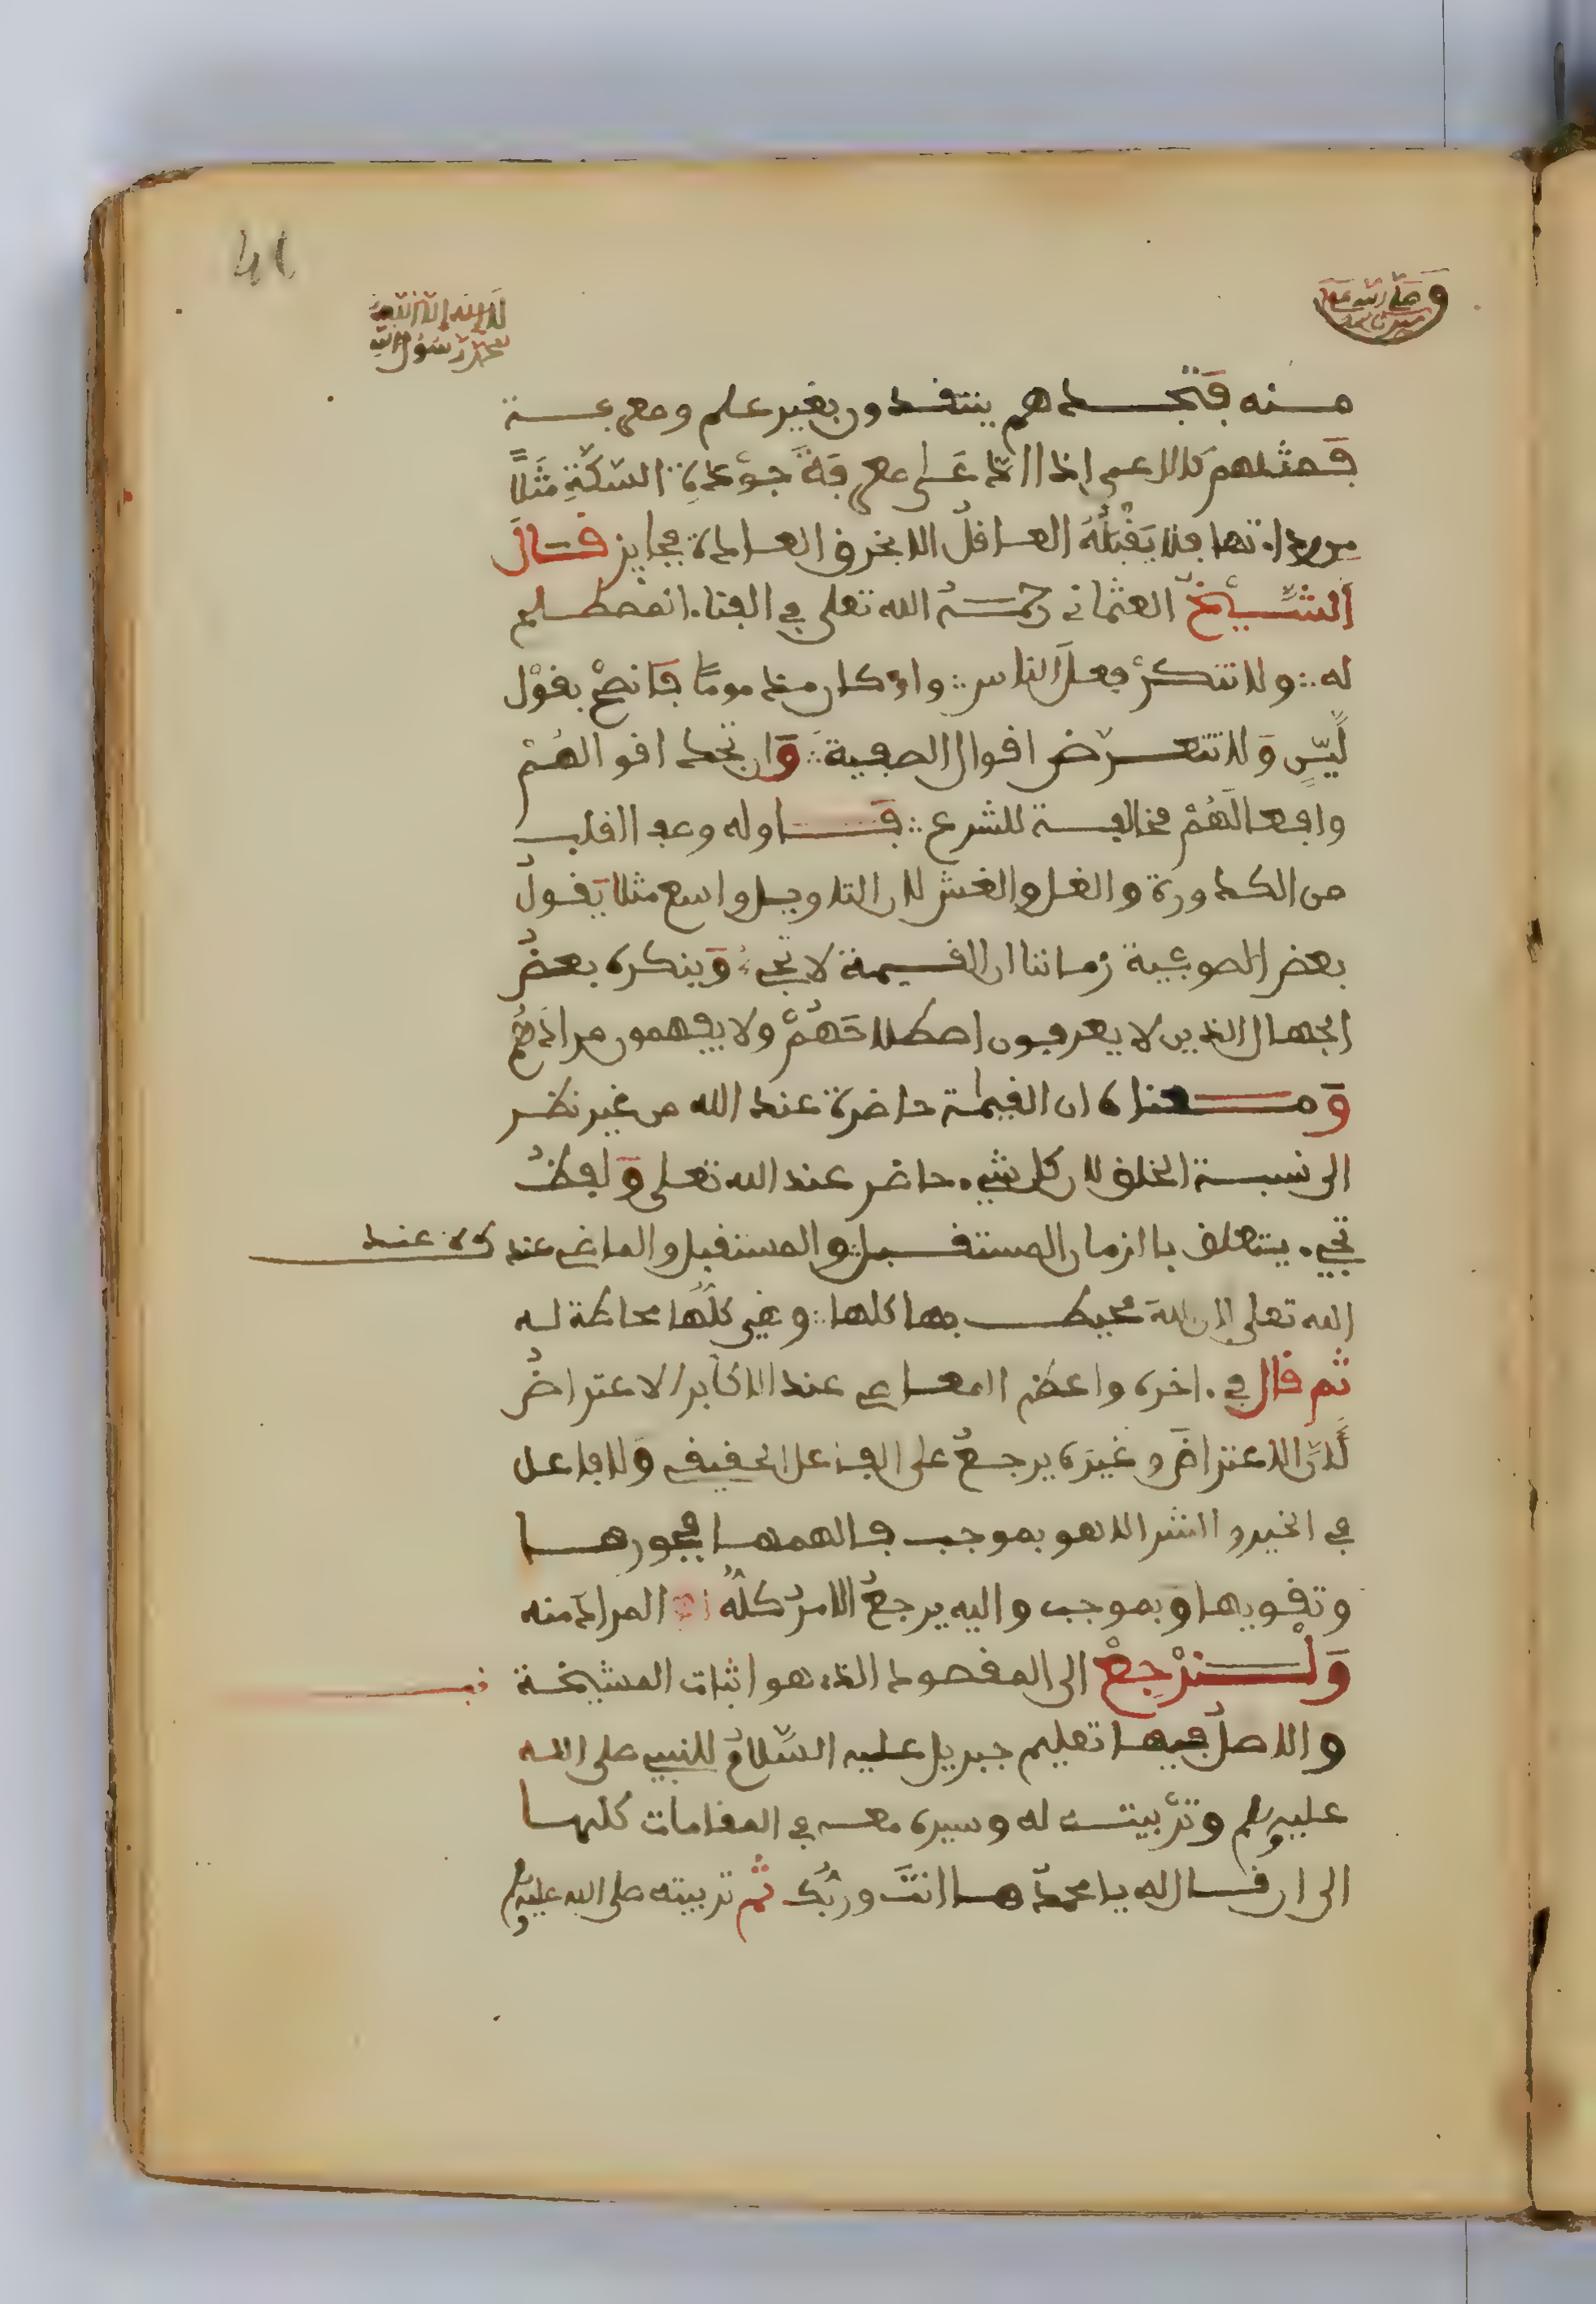 41
وصلى الله على سيدنا محمد
لا إله إلا الله
محمد رسول الله
منه فتجدهم ينتقدون بغير علم ومعرفة
فمثلهم كالاعمى اذا ادّعَى معرِفةَ جوْدة السّكّةِ مثلًا
ورداءتها فلا يَقْبَلُهُ العاقلُ الا بخرق العادة بجايز فقال
الشّيْخ العثماني رحمهُ الله تعلى في الفناء
له ولا تنكرْ فعلَ الناس وان كان مذمومًا فانصحْ بقوْل
لَيّنٍ ولا تتعرّض اقوال الصوفية وان تجد اقوالهُمْ
وافعالَهُمْ مخالفة للشرع فاوله وعد القلب
من الكدورة والغل والغش لان التاويل واسع مثلا يقولُ
بعض الصوفية زماننا ان القيمة لا تجيء وينكره بعضُ
الجهال الذين لا يعرفون اصطلاحَهُمْ ولا يفهمون مرادَهُمْ
ومعناه ان القيمة حاضرة عند الله من غير نظر
الى نسبة الخلق لان كل شيء حاضر عند الله تعلى ولفظُ
تجيء يتعلق باازمان المستقبل والمستقبل والماضي عند
الله تعلى لان اللهَ محيط بها كلها وهي كلّهَا محاطة له
ثم قال في اخره واعظم المعاصي عند الاكابر الاعتراضُ
لانّ الاعتراضَ وغيرَه يرجعُ على الفاعل الحقيقي ولا فاعل
في الخير والشر الا هو بموجب فالهمها فجورها
وتقويها وبموجب واليه يرجعُ الامرُ كلُّه المراد منه
وَلْنرْجِعْ الى المقصود الذي هو اثبات المشيخة
والاصلُ فيها تعليم جبريل عليه السّلامُ للنبيي صلى الله
عليه وسلم وترْبيته له وسيره معه في المقامات كلها
الى ان قال له يا محمدُ ها انتَ وربُّك ثم تربيته صلى الله عليه وسلم